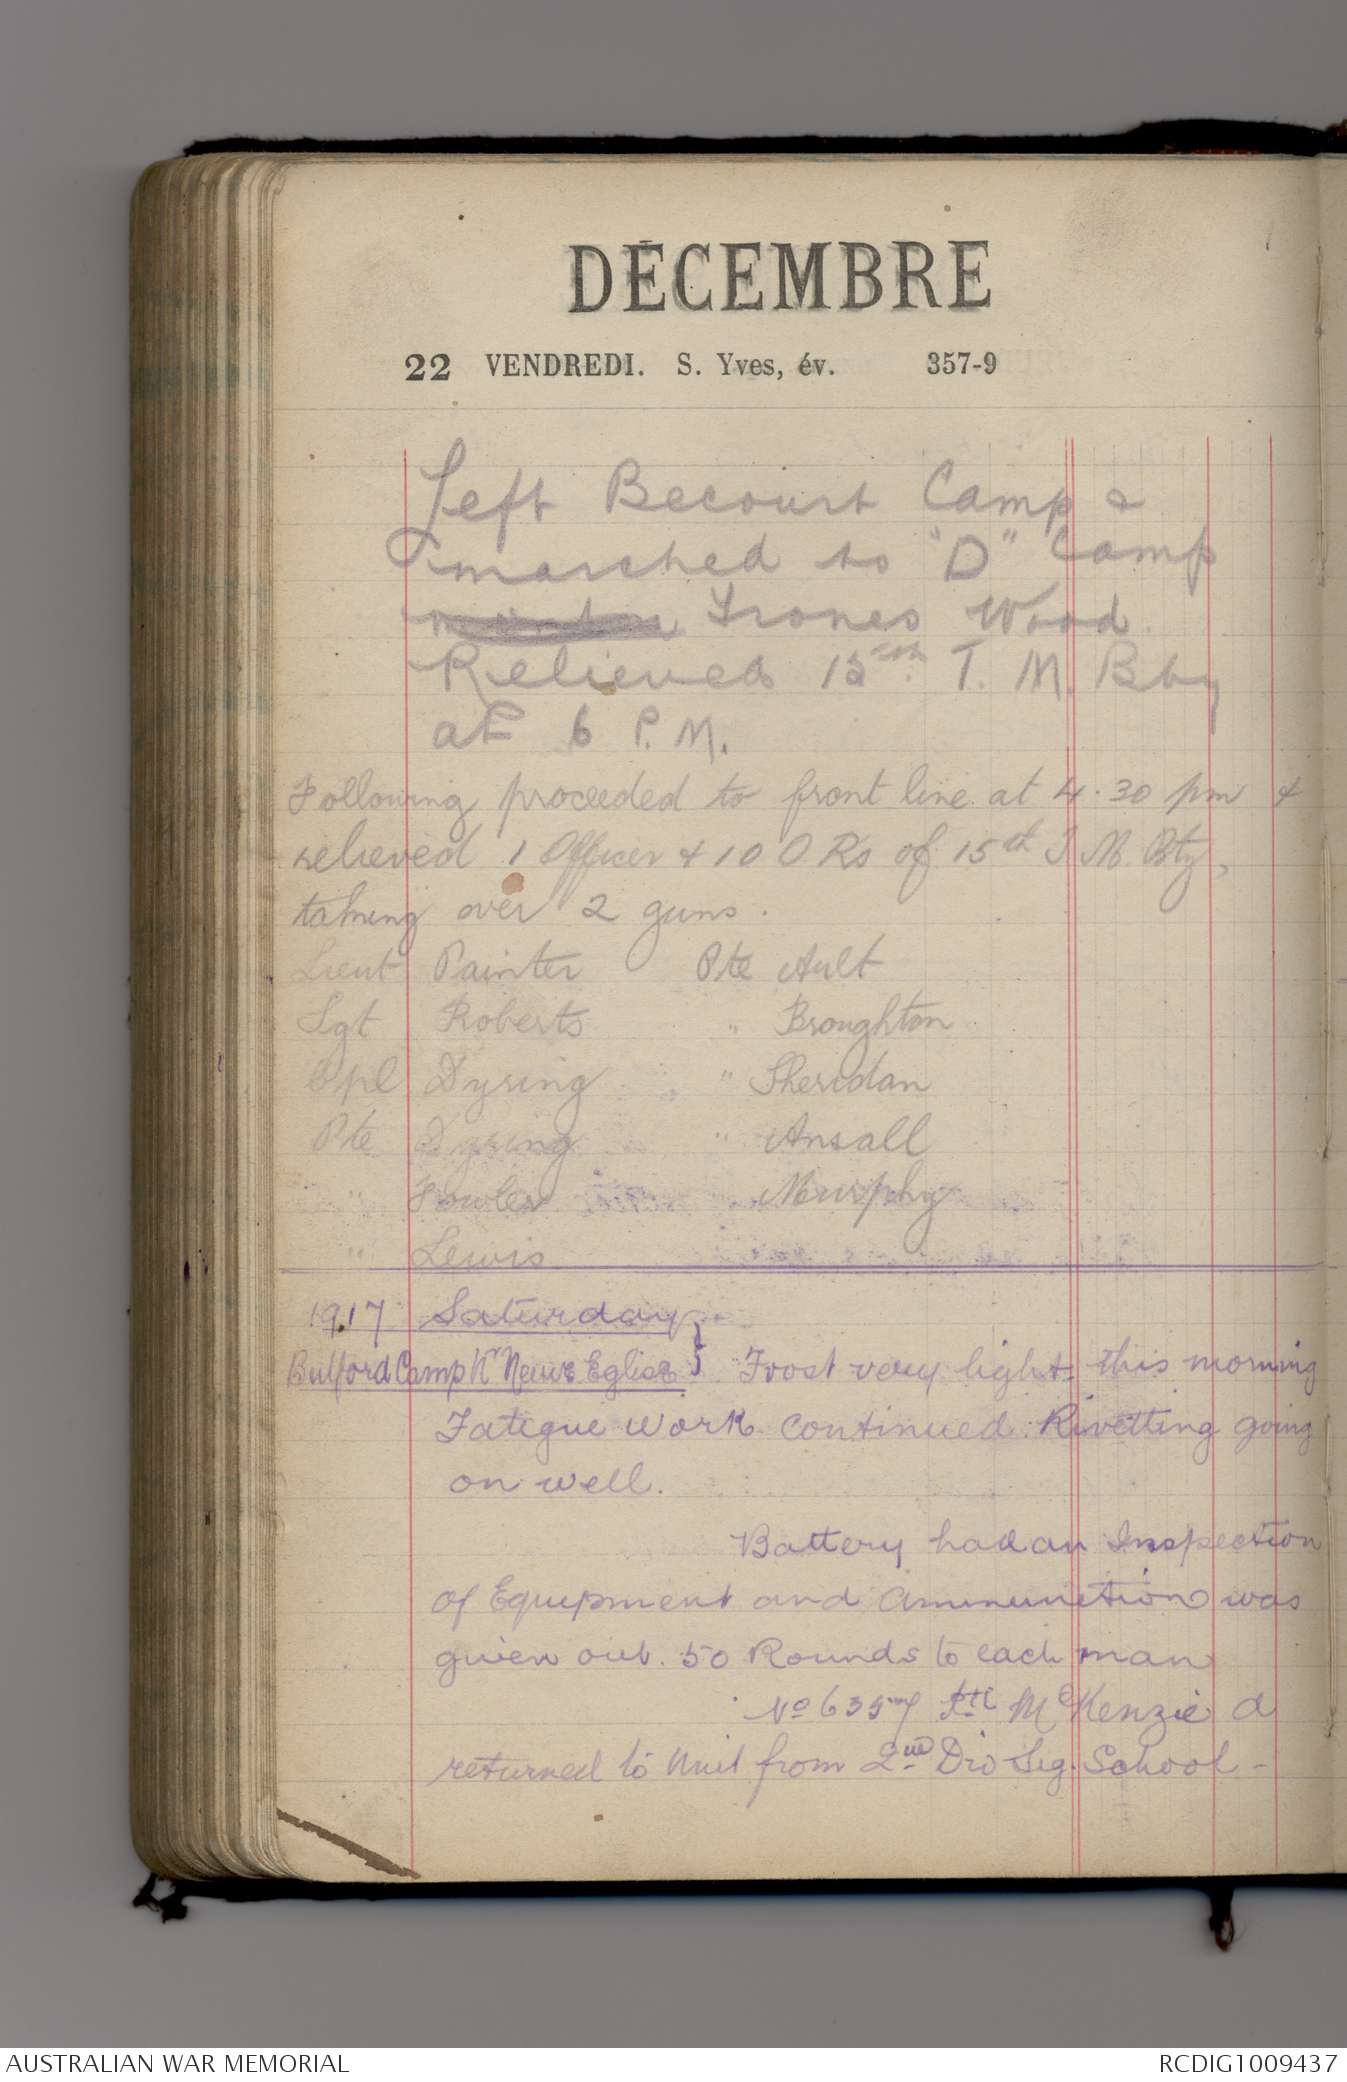 DÉCEMBRE
22 VENDREDI. S. Yves, év. 357-9
Left Becourt Camp &
marched to "D" Camp
Trones Wood.
Relieved 15th T. M. Bty
at 6 P.M.
Following proceeded to front line at 4.30 pm &
relieved 1 Officer & 10 O Rs of 15th T M Bty,
taking over 2 guns.
Lieut Painter Pte Ault
Sgt Roberts " Broughton
Cpl Dyring " Sheridan
Pte Dyring " Ansall
" Fowler " Murphy
" Lewis
1917 Saturday
Bulford Camp Nr Neuve Eglise } Frost very light this morning
Fategue work continued. Rivetting going
on well.
Battery had an Inspection
of Equipment and ammunition was
given out. 50 Rounds to each man
No Pte McKenzie a
returned to Unit from 2nd Div Sig. School -
AUSTRALIAN WAR MEMORIAL RCDIG1009437